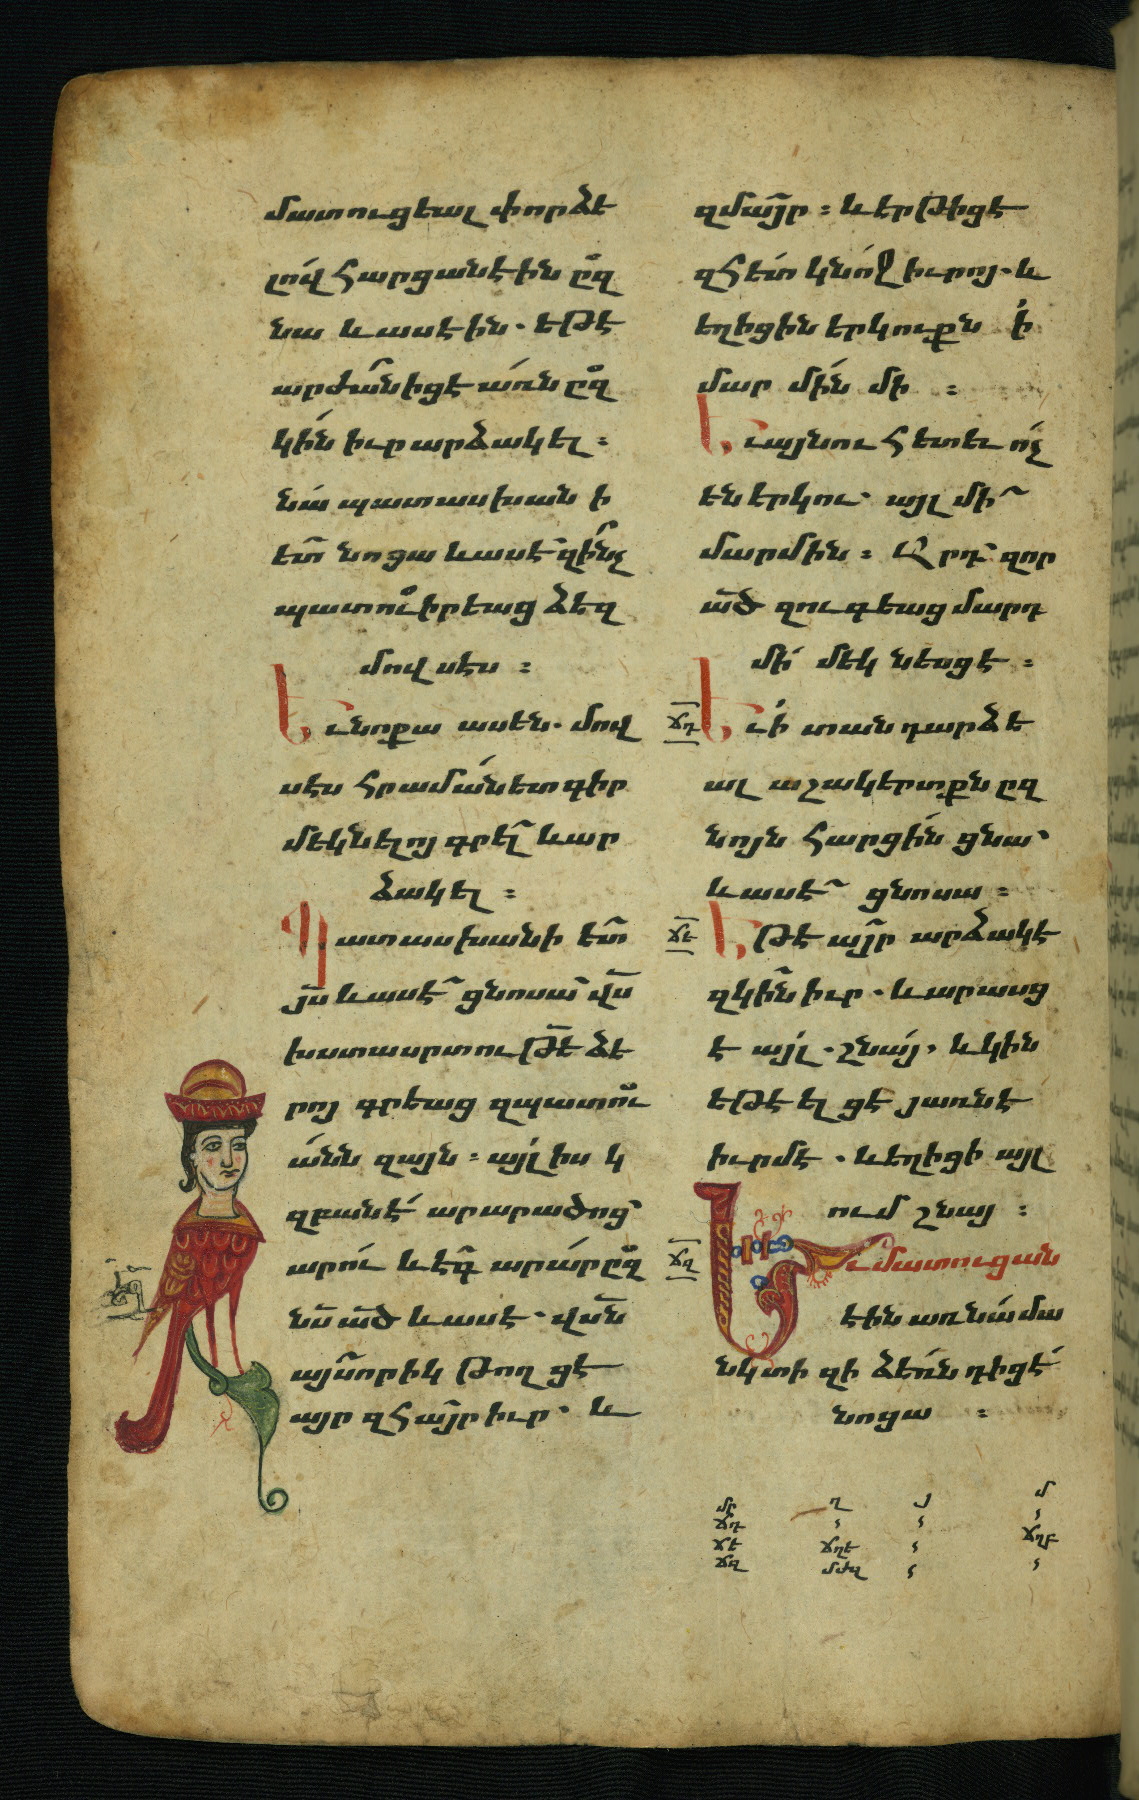 մատուցեալ փորձե
լով հարցանէին ըզ
նա և ասէին. եթէ
արժա՞ն իցէ առն ըզ
կին իւր արձակել :
նա պատասխան ի
ետ նոցա և ասէ զի՞նչ
պատուիրեաց ձեզ
մովսէս :
Եւ նոքա ասեն. մով
սէս հրամանետ գիր
մեկնելոյ գրել և ար
ձակել :
Պատասխանի ետ
յս և ասէ ցնոսա վս
խստասրտութե ձե
րոյ գրեաց զպատու
անն զայն : այլ իս կ
զբանէ արարածոց
արու և էգ արար ըզ
նս ած և ասէ. վսն
այսորիկ թող ցէ
այր զհայր իւր. և
զմայր : և երթիցէ
զհետ կնոջ իւրոյ. և
եղիցին երկուքն ի
մար մին մի :
Եւ այնու հետեւ ոչ
են երկու. այլ մի
մարմին : Արդ զոր
ած զուգեաց մարդ
մի մեկնեսցէ :
ճդ Եւ ի տան դարձե
ալ աշակերտքն ըզ
նոյն հարցին ցնա
և ասէ ցնոսա :
ճե Եթէ այր արձակէ
զկին իւր. և արասց
է այլ. շնայ. և կին
եթէ ել ցէ յառնէ
իւրմէ. և եղիցի այլ
ում շնայ :
ճզ Եւ մատուցան
էին առ նա մա
նկտի զի ձեռն դիցէ
նոցա :
մր ղ յ մ
ճդ
ճե ճղե ճղբ
ճզ մժզ